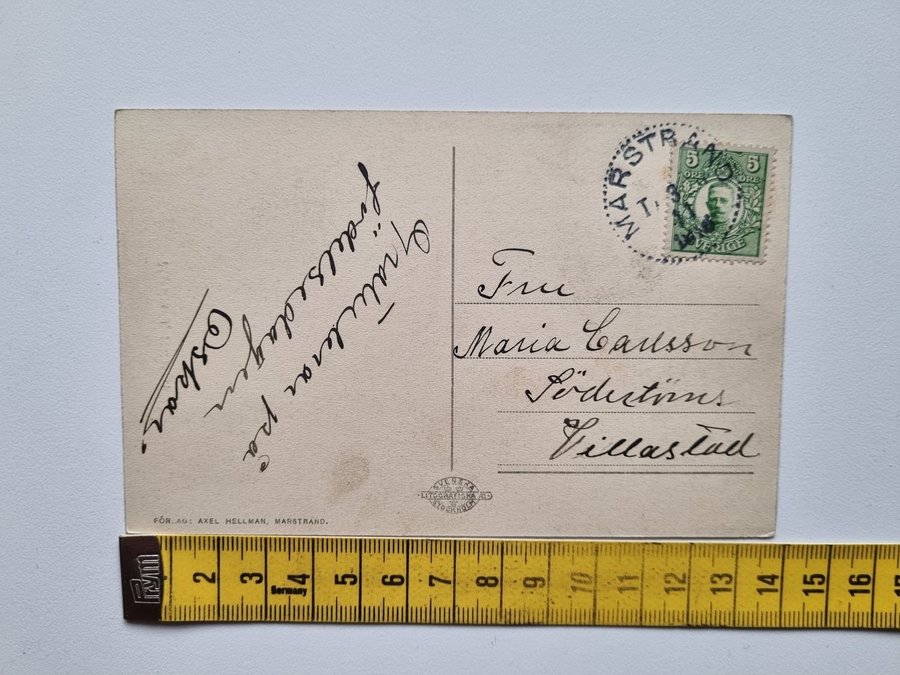 Gratulerar på
födelsedagen
Oskar.
MARSTRAND
5 5
ÖRE ÖRE
SVERIGE
Fru
Maria Carlsson
Södertörns
Villastad
SVENSKA
LITOGRAFISKA AB
STOCKHOLM
FÖRLAG: AXEL HELLMAN, MARSTRAND.
Prym
2 3 4 5 6 7 8 9 10 11 12 13 14 15 16
Germany